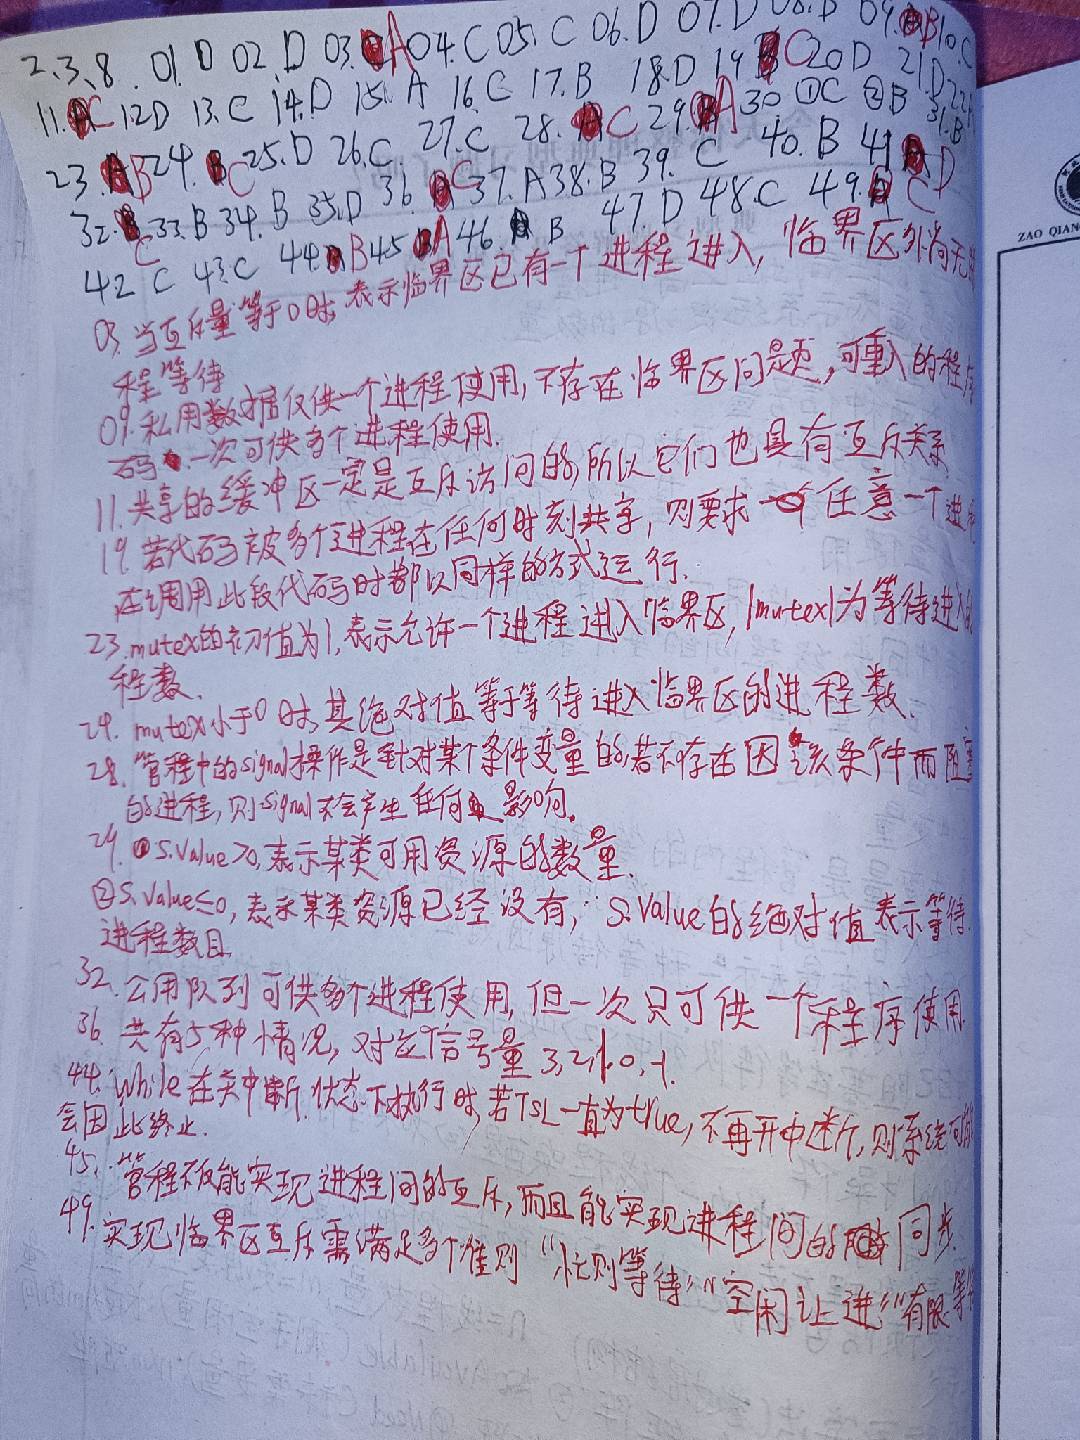 2.3.8. 01.D 02.D 03.A 04.C 05.C 06.D 07.D 08.D 09.B 10.C
11.C 12D 13.C 14.D 15.A 16.C 17.B 18.D 19.C 20D 21.D 22.
23.B 24.C 25.D 26.C 27.C 28.C 29.A 30 ①C ②B 31.B
32.C 33.B 34.B 35.D 36.C 37.A 38.B 39.C 40.B 41.D
42 C 43.C 44.B 45 A 46.B 47.D 48.C 49.C
03.当互斥量等于0时,表示临界区已有一个进程进入,临界区外尚无
程等待
09.私用数据仅供一个进程使用,不存在临界区问题,可重入的程
码一次可供多个进程使用.
11.共享的缓冲区一定是互斥访问的,所以它们也具有互斥关系
19.若代码被多个进程在任何时刻共享,则要求任意一个进
在调用此段代码时都以同样的方式运行.
23.mutex的初值为1,表示允许一个进程进入临界区,|mutex|为等待进入
程数.
24. mutex小于0时,其绝对值等于等待进入临界区的进程数.
28.管程中的signal操作是针对某个条件变量的,若不存在因该条件而阻
的进程,则signal不会产生任何影响.
29.①S.value>0,表示某类可用资源的数量.
②S.value≤0,表示某类资源已经没有,S.value的绝对值表示等待
进程数目
32.公用队列可供多个进程使用,但一次只可供一个程序使用.
36.共有5种情况,对应信号量3,2,1,0,-1.
44.while在关中断状态下执行时,若TSL一直为true,不再开中断,则系统可能
会因此终止.
45.管程不仅能实现进程间的互斥,而且能实现进程间的同步.
49.实现临界区互斥需满足多个准则"忙则等待""空闲让进""有限等
ZAO QIAN